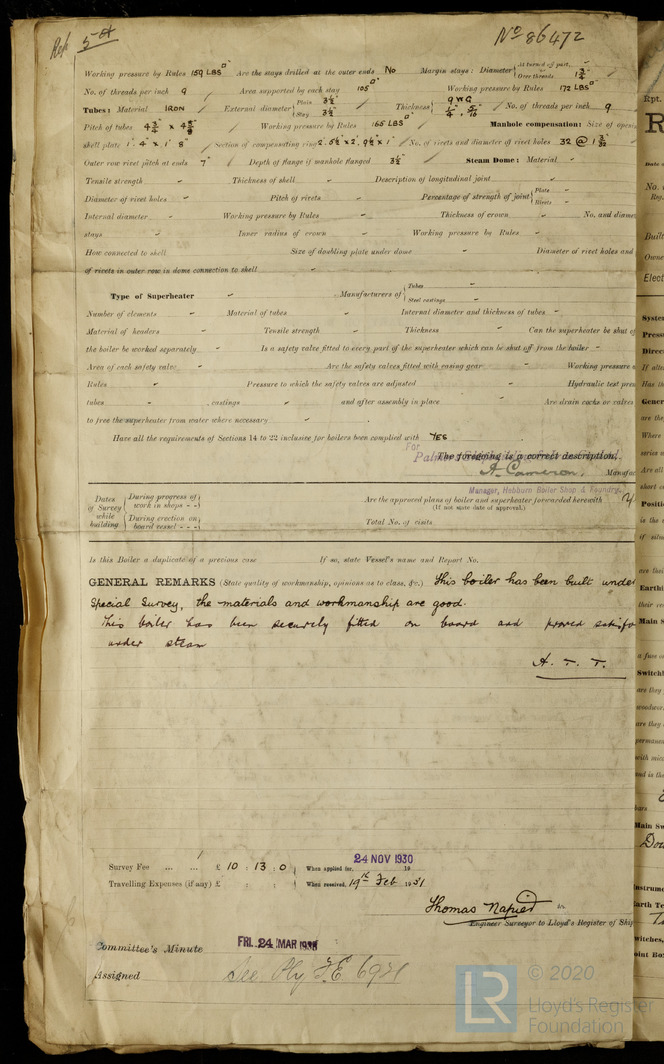 Rpt 5a
No 86472
Working pressure by Rules 159 LBS□" Are the stays drilled at the outer ends No Margin stays: Diameter {At turned off part, - Over threads 1 3/4"
No. of threads per inch 9 Area supported by each stay 105□" Working pressure by Rules 172 LBS□"
Tubes: Material IRON External diameter {Plain 3 1/2" Stay 3 1/2" Thickness { 9 WG 1/4" & 5/16" No. of threads per inch 9
Pitch of tubes 4 3/4" x 4 5/8" Working pressure by Rules 165 LBS□" Manhole compensation: Size of openi
shell plate 1' 4" x 1' 8" Section of compensating ring 2. 5 1/2" x 2' 9 1/2" x 1" No. of rivets and diameter of rivet holes 32 @ 1 3/32
Outer row rivet pitch at ends 7" Depth of flange if manhole flanged 3 1/2" Steam Dome: Material -
Tensile strength - Thickness of shell - Description of longitudinal joint -
Diameter of rivet holes - Pitch of rivets - Percentage of strength of joint {Plate - Rivets -
Internal diameter - Working pressure by Rules - Thickness of crown - No. and diame
stays - Inner radius of crown - Working pressure by Rules -
How connected to shell - Size of doubling plate under dome - Diameter of rivet holes and
of rivets in outer row in dome connection to shell -
Type of Superheater - Manufacturers of {Tubes - Steel castings -
Number of elements - Material of tubes - Internal diameter and thickness of tubes -
Material of headers - Tensile strength - Thickness - Can the superheater be shut of
the boiler be worked separately - Is a safety valve fitted to every part of the superheater which can be shut off from the boiler -
Area of each safety valve - Are the safety valves fitted with easing gear - Working pressure
Rules - Pressure to which the safety valves are adjusted - Hydraulic test pres
tubes - castings - and after assembly in place - Are drain cocks or valves
to free the superheater from water where necessary -
Have all the requirements of Sections 14 to 22 inclusive for boilers been complied with YES
For
The foregoing is a correct description,
A. Cameron, Manufac
Manager, Hebburn Boiler Shop & Foundry.
Dates of Survey while building {During progress of work in shops - - During erection on board vessel - - -
Are the approved plans of boiler and superheater forwarded herewith
(If not state date of approval.)
Total No. of visits
Is this Boiler a duplicate of a previous case If so, state Vessel's name and Report No.
GENERAL REMARKS (State quality of workmanship, opinions as to class, &c.) This boiler has been built under
Special Survey, the materials and workmanship are good.
This boiler has been securely fitted on board and proved satisfa
under steam
A. T. T.
Survey Fee ... ... £ 10 : 13 : 0 When applied for, 24 NOV 1930 19
Travelling Expenses (if any) £ : : When received, 19th Feb 1931
Thomas Napier
Engineer Surveyor to Lloyd's Register of Ship
Committee's Minute FRI. 24 MAR 193
Assigned See Rly F.E. 6921
© 2020
Lloyd's Register
Foundation
LR
Rpt.
R
Date
No.
Reg.
Built
Owne
Elect
Syste
Press
Direc
If alte
Has th
Gener
are the
Where
series
Are all
short c
Positi
is the
if situ
Earthi
their re
Main S
a fuse o
Switchb
are they
woodwor
are they
permane
with suit
and is the
bars
Main Sw
Dou
Instrume
Earth Te
witches,
oint Box